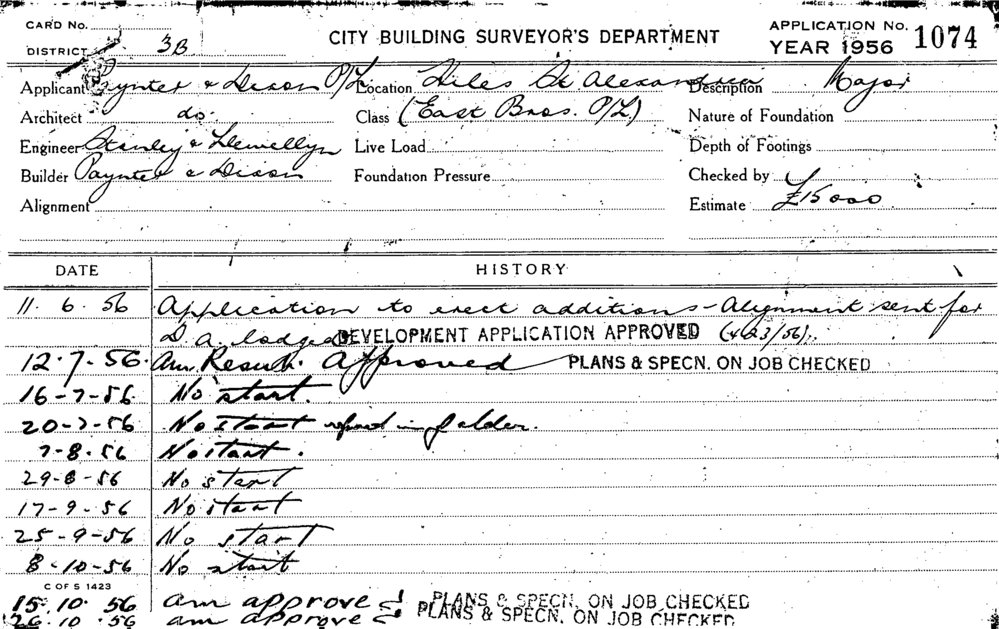 CARD No.
DISTRICT 3B
CITY BUILDING SURVEYOR'S DEPARTMENT
APPLICATION No. 1074
YEAR 1956
Applicant Paynter & Dixon P/L Location Hiles St Alexandria Description Major
Architect do. Class (East Bros. P/L) Nature of Foundation
Engineer Stanley & Llewellyn Live Load Depth of Footings
Builder Paynter & Dixon Foundation Pressure Checked by
Alignment Estimate £15000
DATE HISTORY
11.6.56 Application to erect additions - Alignment sent for
D a lodged DEVELOPMENT APPLICATION APPROVED (423/56).
12.7.56. Am Result. Approved PLANS & SPECN. ON JOB CHECKED
16-7-56. No start.
20-7-56 No start in folder.
7-8.56 No start.
29-8-56 No start
17-9-56 No start
25-9-56 No start
8-10-56 No start
C OF S 1423
15.10.56 am approve PLANS & SPECN. ON JOB CHECKED
26.10.56 am approve PLANS & SPECN. ON JOB CHECKED